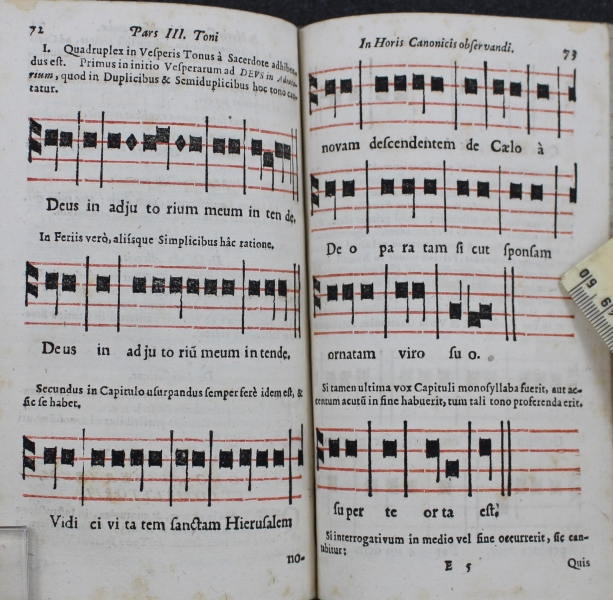 72 Pars III. Toni
I. Quadruplex in Vesperis Tonus à Sacerdote adhiben
dus est. Primus in initio Vesperarum ad DEVS in Adiuto
rium, quod in Duplicibus & Semiduplicibus hoc tono can
tatur.
Deus in adju to rium meum in ten de,
In Feriis verò, aliisque Simplicibus hâc ratione,
De us in ad ju to riũ meum in tende.
Secundus in Capitulo usurpandus semper ferè idem est, &
sic se habet.
Vidi ci vi ta tem sanctam Hierusalem
no-
In Horis Canonicis observandi. 73
novam descendentem de Cælo à
De o pa ra tam si cut sponsam
ornatam viro su o.
Si tamen ultima vox Capituli monosyllaba fuerit, aut ac-
centum acutũ in fine habuerit, tum tali tono proferenda erit.
su per te or ta est.
Si interrogativum in medio vel fine occurrerit, sic can-
tabitur:
E 5 Quis